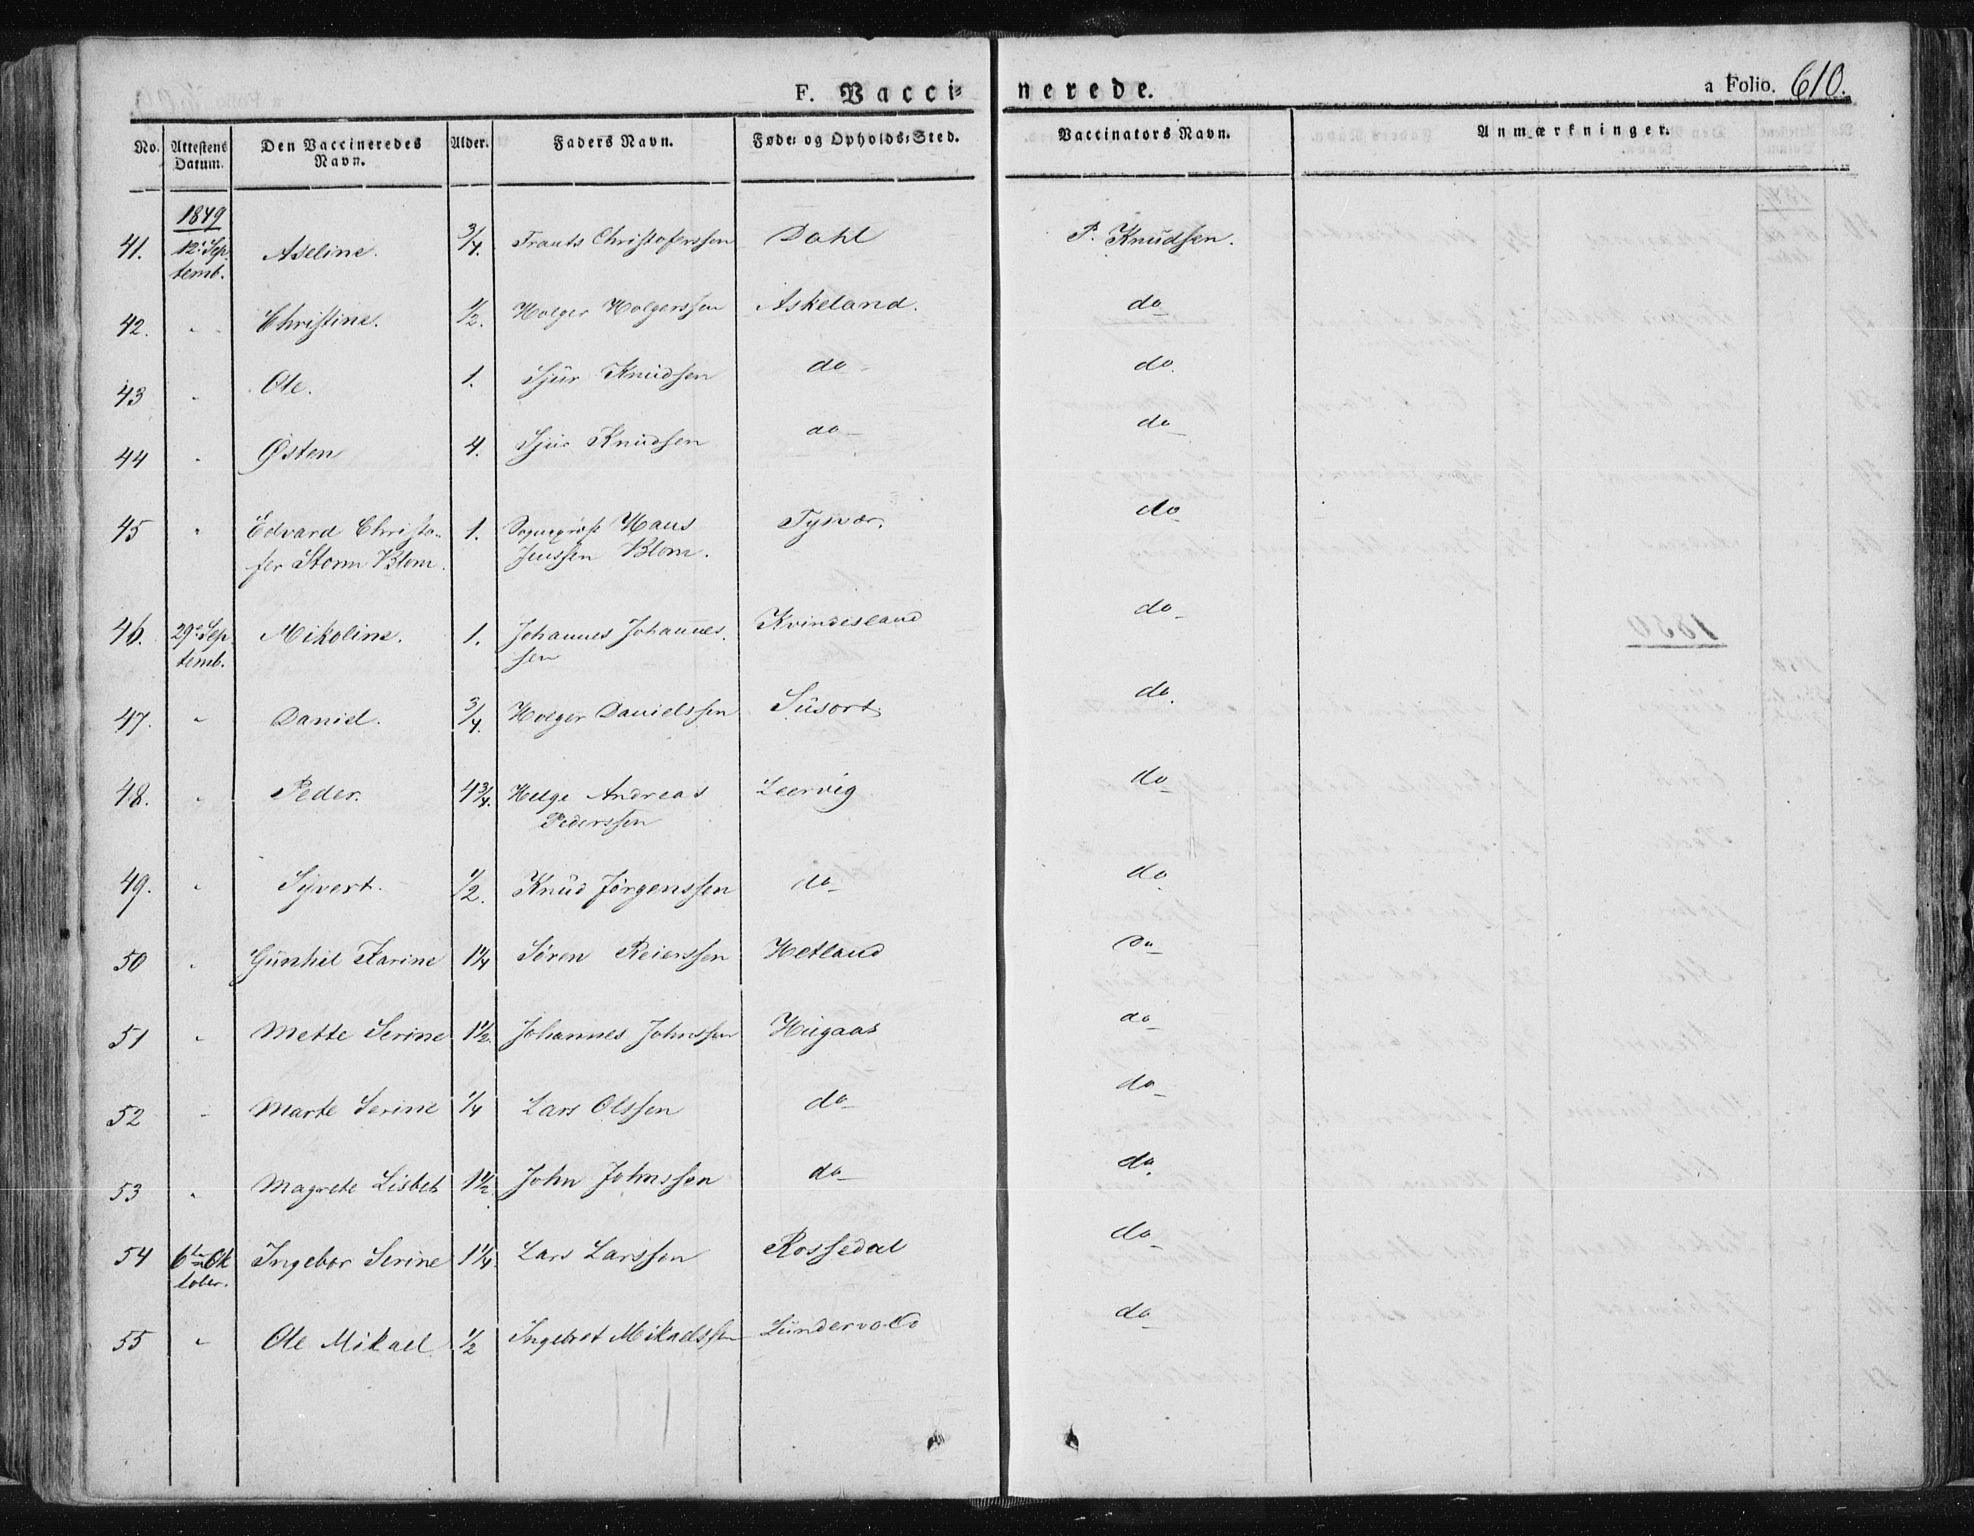 F. Vaccinerede.
a Folio. 610.
No. Attestens Datum. Den Vaccineredes Navn. Alder. Faders Navn. Føde- og Opholds-Sted. Vaccinators Navn. Anmærkninger.
1849
41. 12. Sep- Aseline. 3/4. Frants Christoferssen Dahl P. Knudsen.
temb.
42. " Christine. 1/2. Holger Holgerssen Askeland. do
43 " Ole. 1. Sjur Knudsen do do
44 " Østen 4. Sjur Knudsen do do
45 " Edvard Christo- 1. Sognepræst Hans Tysvær. do
fer Storm Blom. Jenssen Blom.
46. 29. Sep Mikoline. 1. Johannes Johannes- Kvindesland do
temb. sen
47. " Daniel. 3/4. Holger Danielssen Susort do
48. " Peder. 4 3/4. Helge Andreas Leervig do
Pederssen
49. " Syvert. 1/2. Knud Jørgenssen do do
50 " Gunhil Karine 1 1/4 Søren Reierssen Hetland do
51 " Mette Serine 1 1/2. Johannes Johnssen Hugaas do
52 " Marte Serine 1/4 Lars Olssen do do
53 " Magrete Lisbet 1 1/2. John Johnssen do do
54 6te Ok Ingebor Serine 1 1/4 Lars Larssen Rossedal do
tober.
55 " Ole Mikael 1/2 Ingebret Mikaelssen Lundervold do